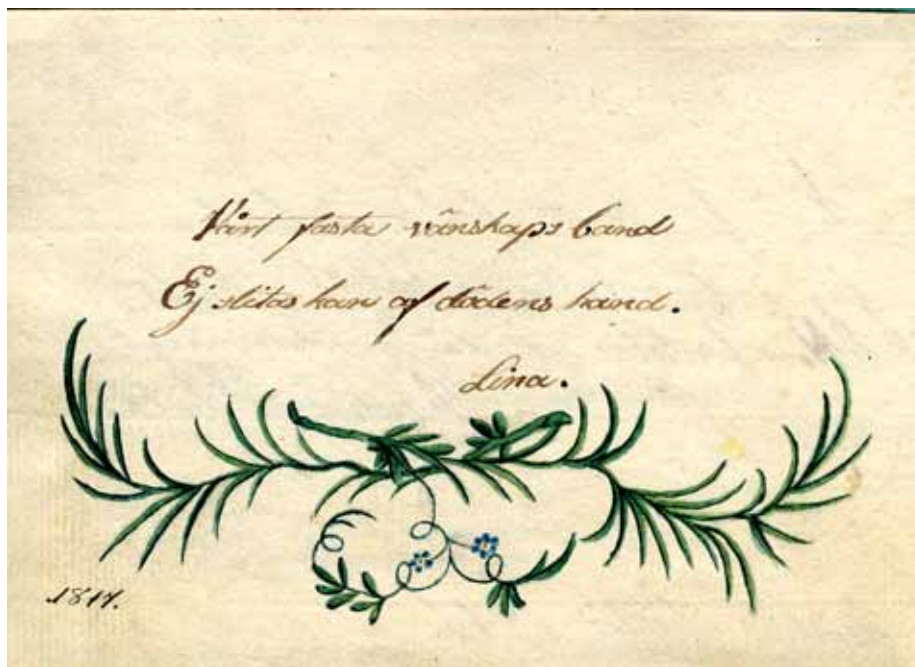 Vårt fasta vänskaps band
Ej slitas kan af dödens hand.
Lina.
1817.